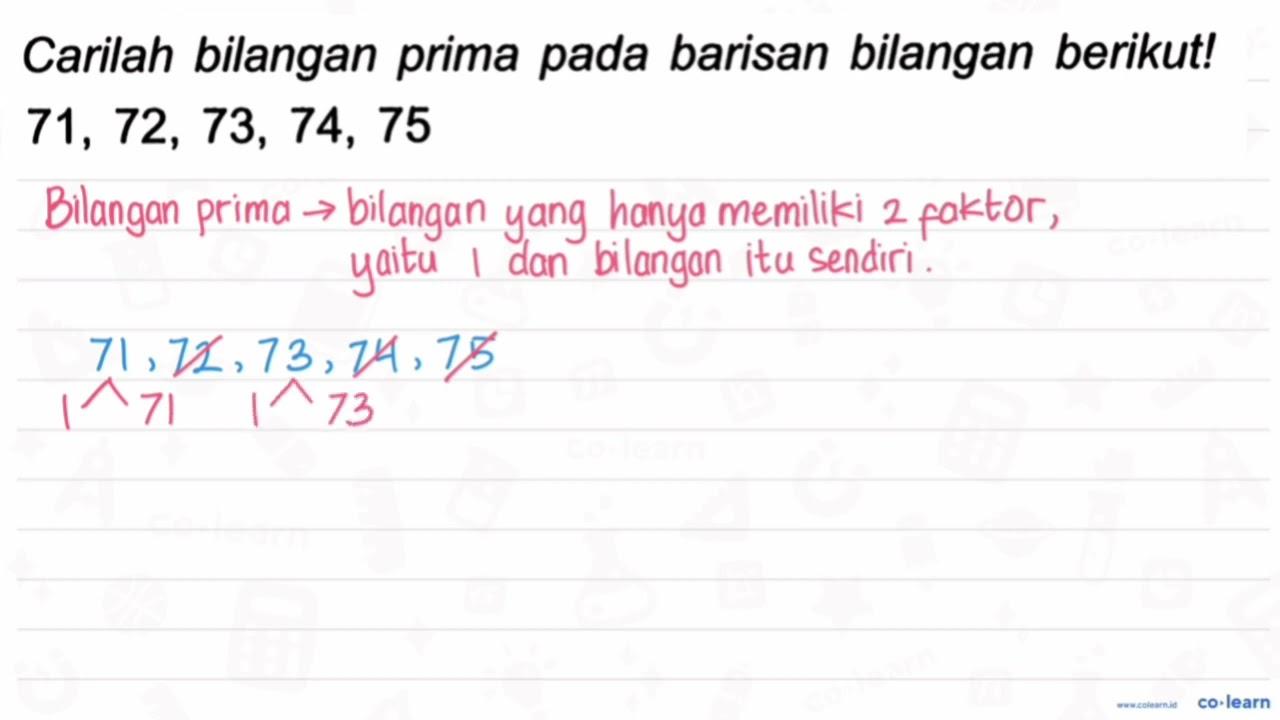 Carilah bilangan prima pada barisan bilangan berikut!
71, 72, 73, 74, 75
Bilangan prima → bilangan yang hanya memiliki 2 faktor,
yaitu 1 dan bilangan itu sendiri.
71, 72, 73, 74, 75
1 71 1 73
co·learn
co·learn
co·learn
co·learn
www.colearn.id co·learn